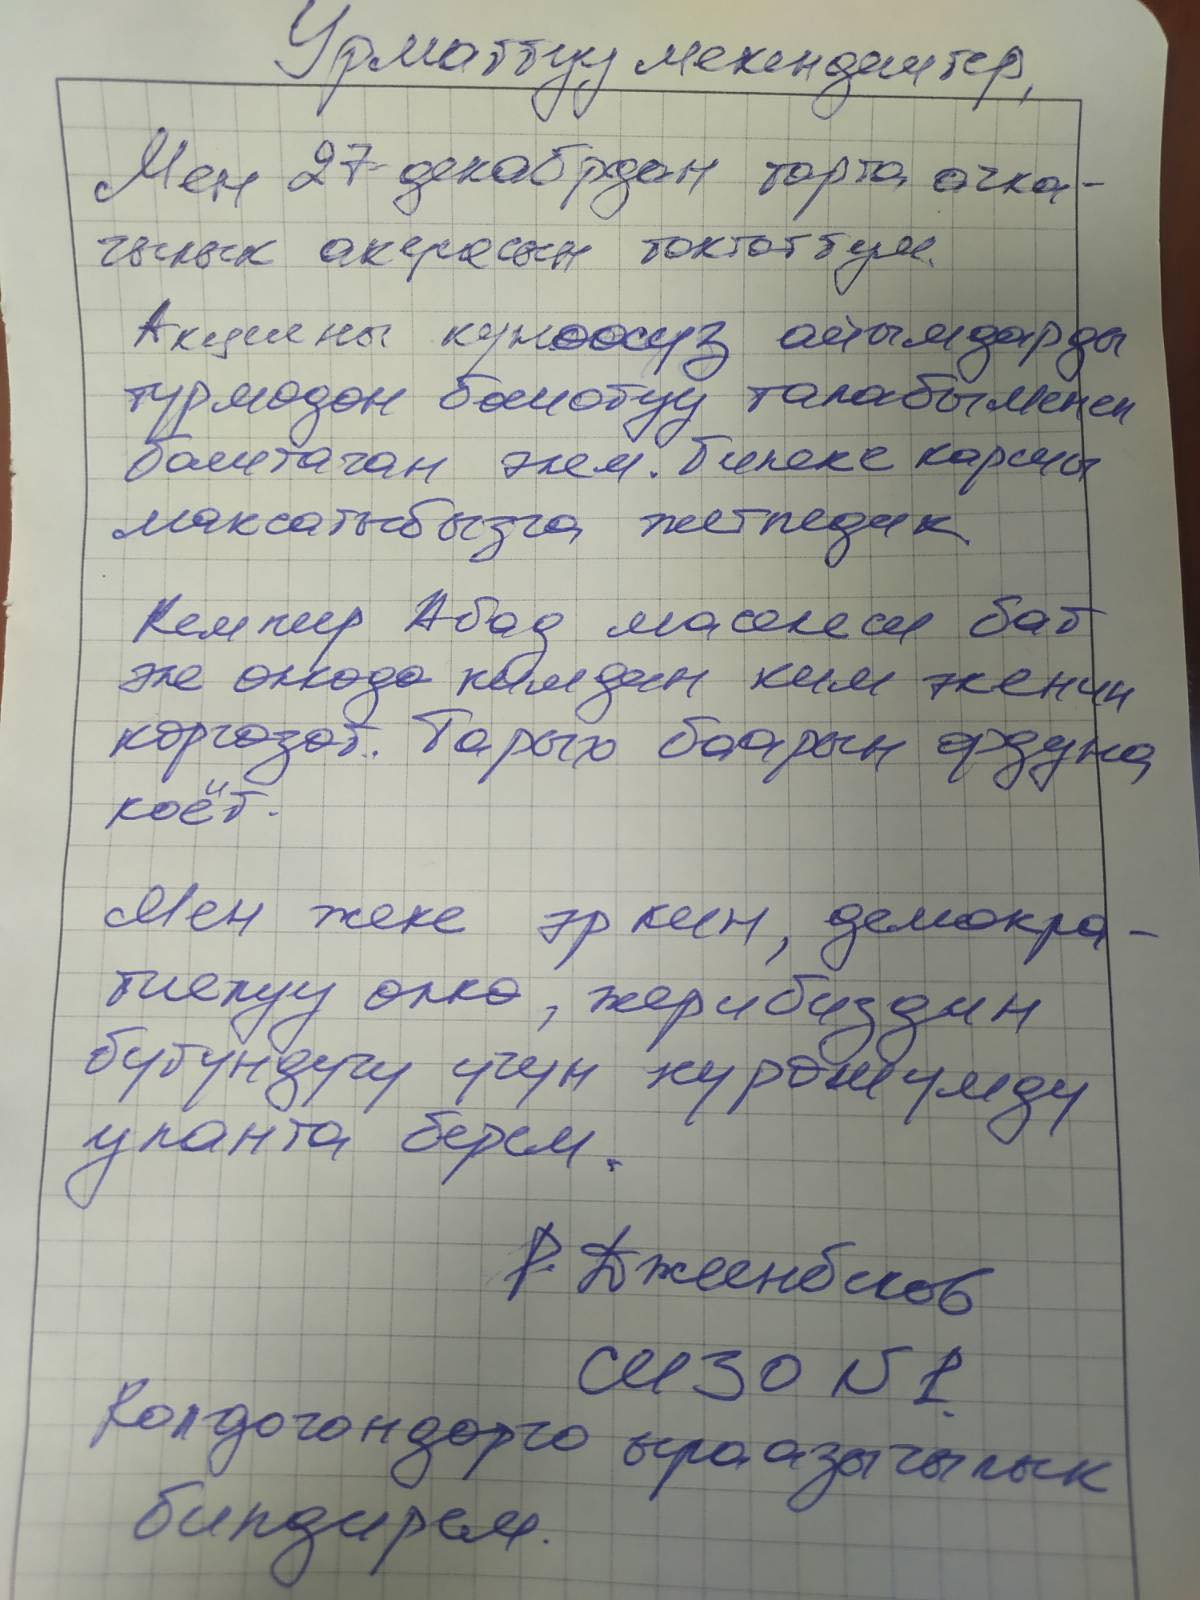 Урматтуу мекендештер,
Мен 27-декабрдан тарта ачка-
чылык акциясын токтоттум.
Акцияны күнөөсүз айымдарды
түрмөдөн бошотуу талабы менен
баштаган элем. Тилеке каршы
максатыбызга жетпедик
Кемпир Абад маселеси бат
эле өлкөдө кимдин ким экенин
көргөзөт. Тарых баарын ордуна
коёт.
Мен жеке эркин, демокра-
тиялуу өлкө, жерибиздин
бүтүндүгү үчүн күрөшүмдү
уланта берем.
Р. Джеенбеков
СИЗО N 1.
Колдогондорго ыраазычылык
билдирем.